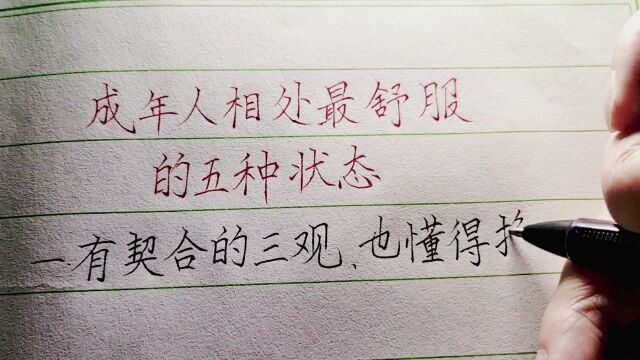 成年人相处最舒服
的五种状态
一.有契合的三观、也懂得